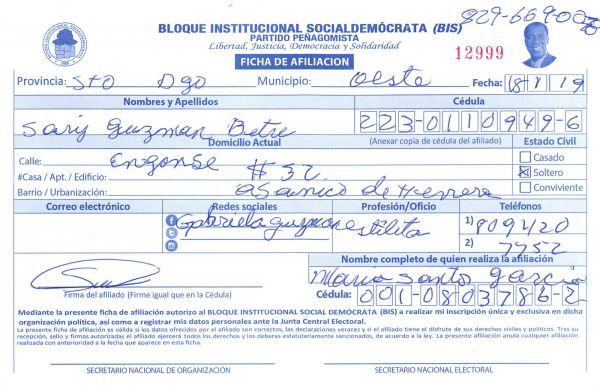 829-669-00
BLOQUE INSTITUCIONAL SOCIALDEMÓCRATA (BIS)
PARTIDO PEÑAGOMISTA
Libertad, Justicia, Democracia y Solidaridad
12999
FICHA DE AFILIACION
Provincia: Sto Dgo Municipio: Oeste Fecha: 18/1/19
Nombres y Apellidos Cédula
Sary Guzman Betre 223-0110949-6
Domicilio Actual (Anexar copia de cédula del afiliado) Estado Civil
Calle: Engonse Casado
#Casa / Apt. / Edificio: # 32 Soltero
Barrio / Urbanización: de Herrera Conviviente
Correo electrónico Redes sociales Profesión/Oficio Teléfonos
Gabriela guzman estilita 1) 809420
2) 7752
Nombre completo de quien realiza la afiliación
Mario Santo Garcia
Firma del afiliado (Firme igual que en la Cédula) Cédula: 001-0803786-2
Mediante la presente ficha de afiliación autorizo al BLOQUE INSTITUCIONAL SOCIAL DEMÓCRATA (BIS) a realizar mi inscripción única y exclusiva en dicha
organización política, así como a registrar mis datos personales ante la Junta Central Electoral.
La presente ficha de afiliación es válida si los datos ofrecidos por el afiliado son correctos, las declaraciones veraces y si el afiliado tiene el disfrute de sus derechos civiles y políticos. Tras su
recepción, sello y firmas autorizadas el afiliado ejercerá todos los derechos y los deberes estatutariamente consignados, de acuerdo a la ley. La presente afiliación anula cualquier afiliación
realizada con anterioridad a la fecha que aparece en esta ficha.
SECRETARIO NACIONAL DE ORGANIZACIÓN SECRETARIO NACIONAL ELECTORAL